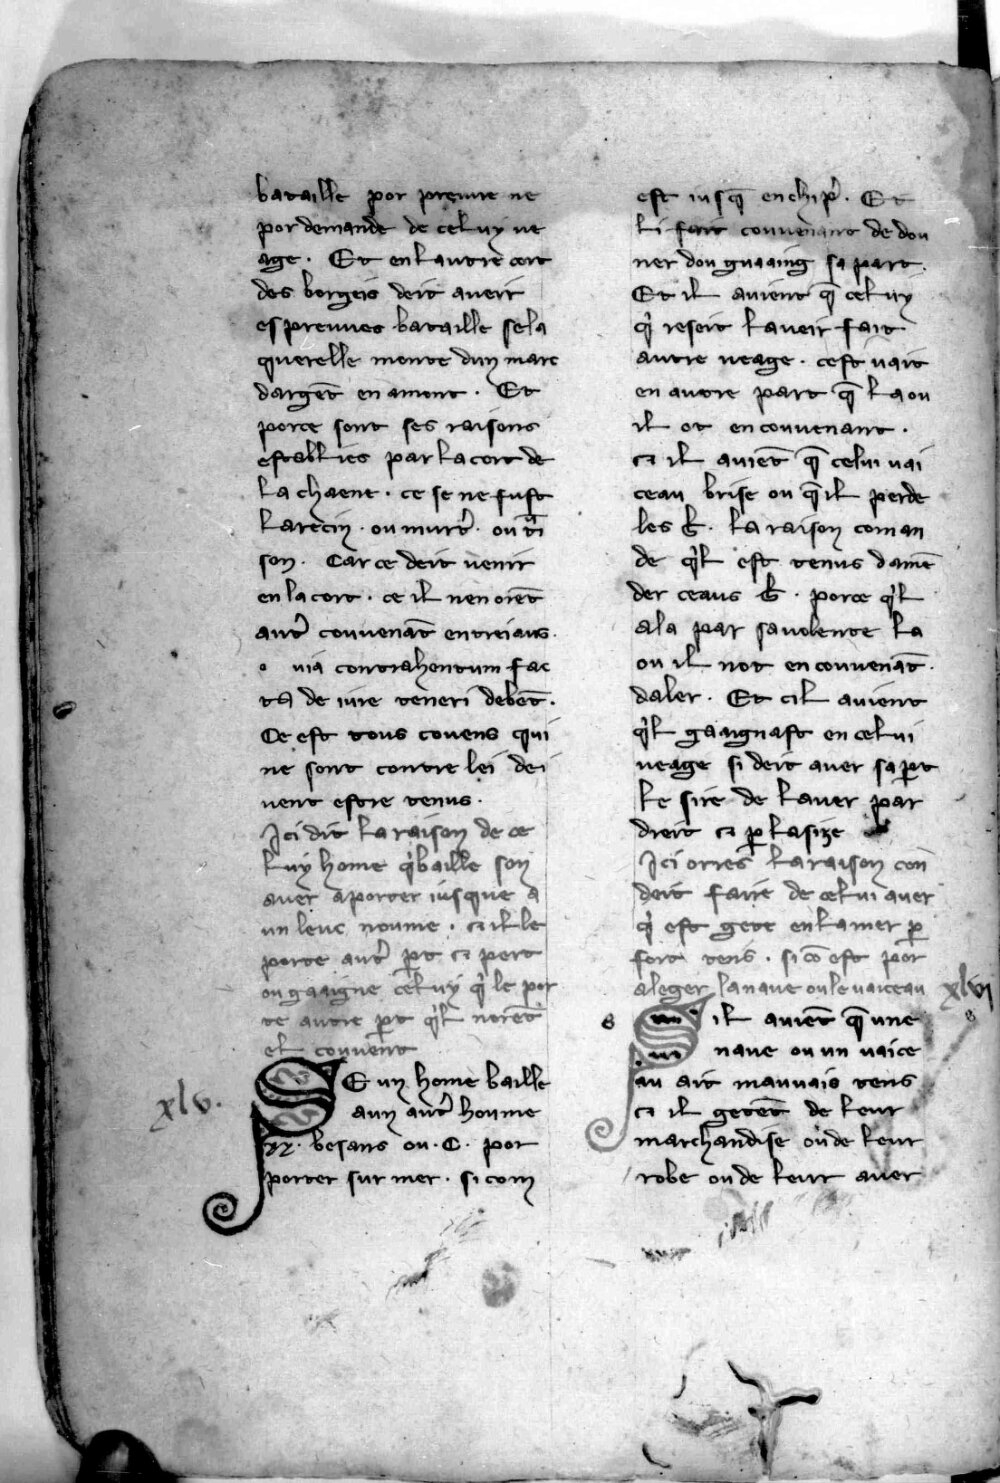 bataille por preuve ne
por demande de celuy ve
age . Et en lautre cort
des borgeis deit aveir
espreuves bataille se la
querelle monte dun marc
dargẽt en amont . Et
por ce sont ses raisons
establies par la cort de
la chaene . ce se ne fust
larecin . ou murtˀ . ou
son . Car ce deit venir
en la cort . ce il nen oiẽt
autˀ couvenãt entreiaus .
via contrahentium fac
ta de iure teneri debẽt .
Ce est tous covens qui
ne sont contre lei dei
vent estre tenus .
Ici dit la raison de ce
luy home qˡ baille son
aver a porter iusque a
un leuc noume . ⁊ il le
porte autˀ ꝑt ⁊ pert
ou gaaigne celuy qˡ le por
te autre ꝑt qˡl norẽt
el couvent
xlv .
SE un home baille
a un autˀ houme
xx . besans ou . C . por
porter sur mer . si com
est iusq̃ en chipˀ . Et
li fait couvenant de dou
ner dou guaaing sa part .
Et il avient q̃ celuy
qˡ reseit laveir fait
autre veage . cest vait
en autre part q̃ la ou
il ot en couvenant .
⁊ il aviẽt q̃ celui vai
ceau brise ou q̃ il perde
les ƀ . la raison coman
de qˡl est tenus damẽ
der ceaus ƀ . por ce qˡl
ala par sa volente la
ou il not en couvenãt .
daler . Et cil avient
qˡl gaaignast en celui
veage si deit aver sa ꝑt
le sire de laver par
dreit ⁊ ꝑ lasize
Ici orres la raison con
deit faire de celui aver
qˡ est gete en la mer ꝑ
fort tens . si cõ est por
aleger la nave ou le vaiceau
xlvi
S il aviẽt q̃ une
nave ou un vaice
au ait mauvais tens
⁊ il getẽt de leur
marchandise ou de leur
robe ou de leur aver